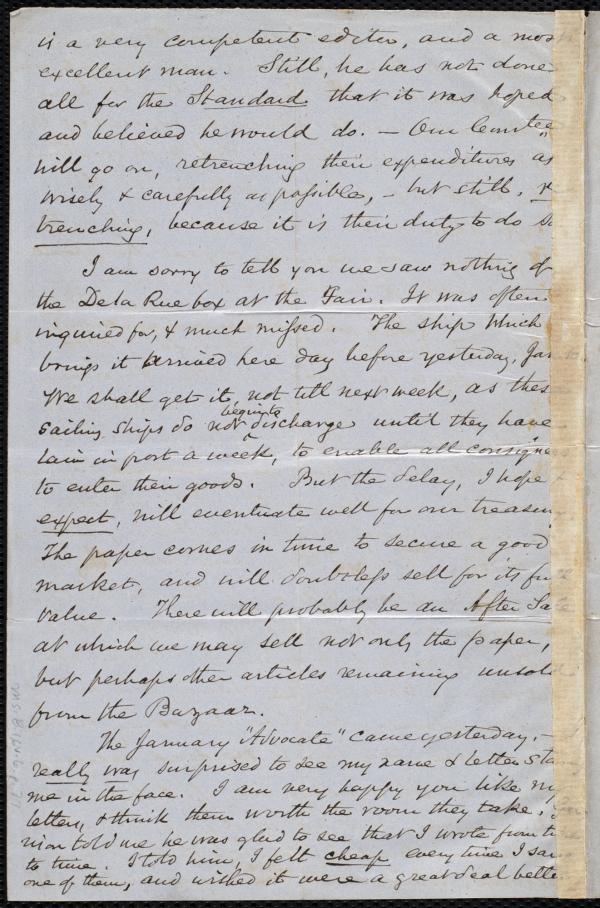 is a very competent editor, and a most
excellent man. Still, he has not done
all for the Standard that it was hoped
and believed he would do. – Our Comtee
will go on, retrenching their expenditures as
wisely & carefully as possible, – but still, re
trenching, because it is their duty to do so
I am sorry to tell you we saw nothing of
the De la Rue box at the Fair. It was often
inquired for, & much missed. The ship which
brings it arrived here day before yesterday, Jan
We shall get it, not till next week, as these
sailing ships do not begin to discharge until they have
lain in port a week, to enable all consignees
to enter their goods. But the delay, I hope &
expect, will eventuate well for our treasury
The paper comes in time to secure a good
market, and will doubtless sell for its full
value. There will probably be an After Sale
at which we may sell not only the paper,
but perhaps other articles remaining unsold
from the Bazaar.
The January "Advocate" came yesterday, –
really was surprised to see my name & letter stare
me in the face. I am very happy you like my
letters, & think them worth the room they take.
told me he was glad to see that I wrote from time
to time. I told him, I felt cheap every time I saw
one of them, and wished it were a great deal better